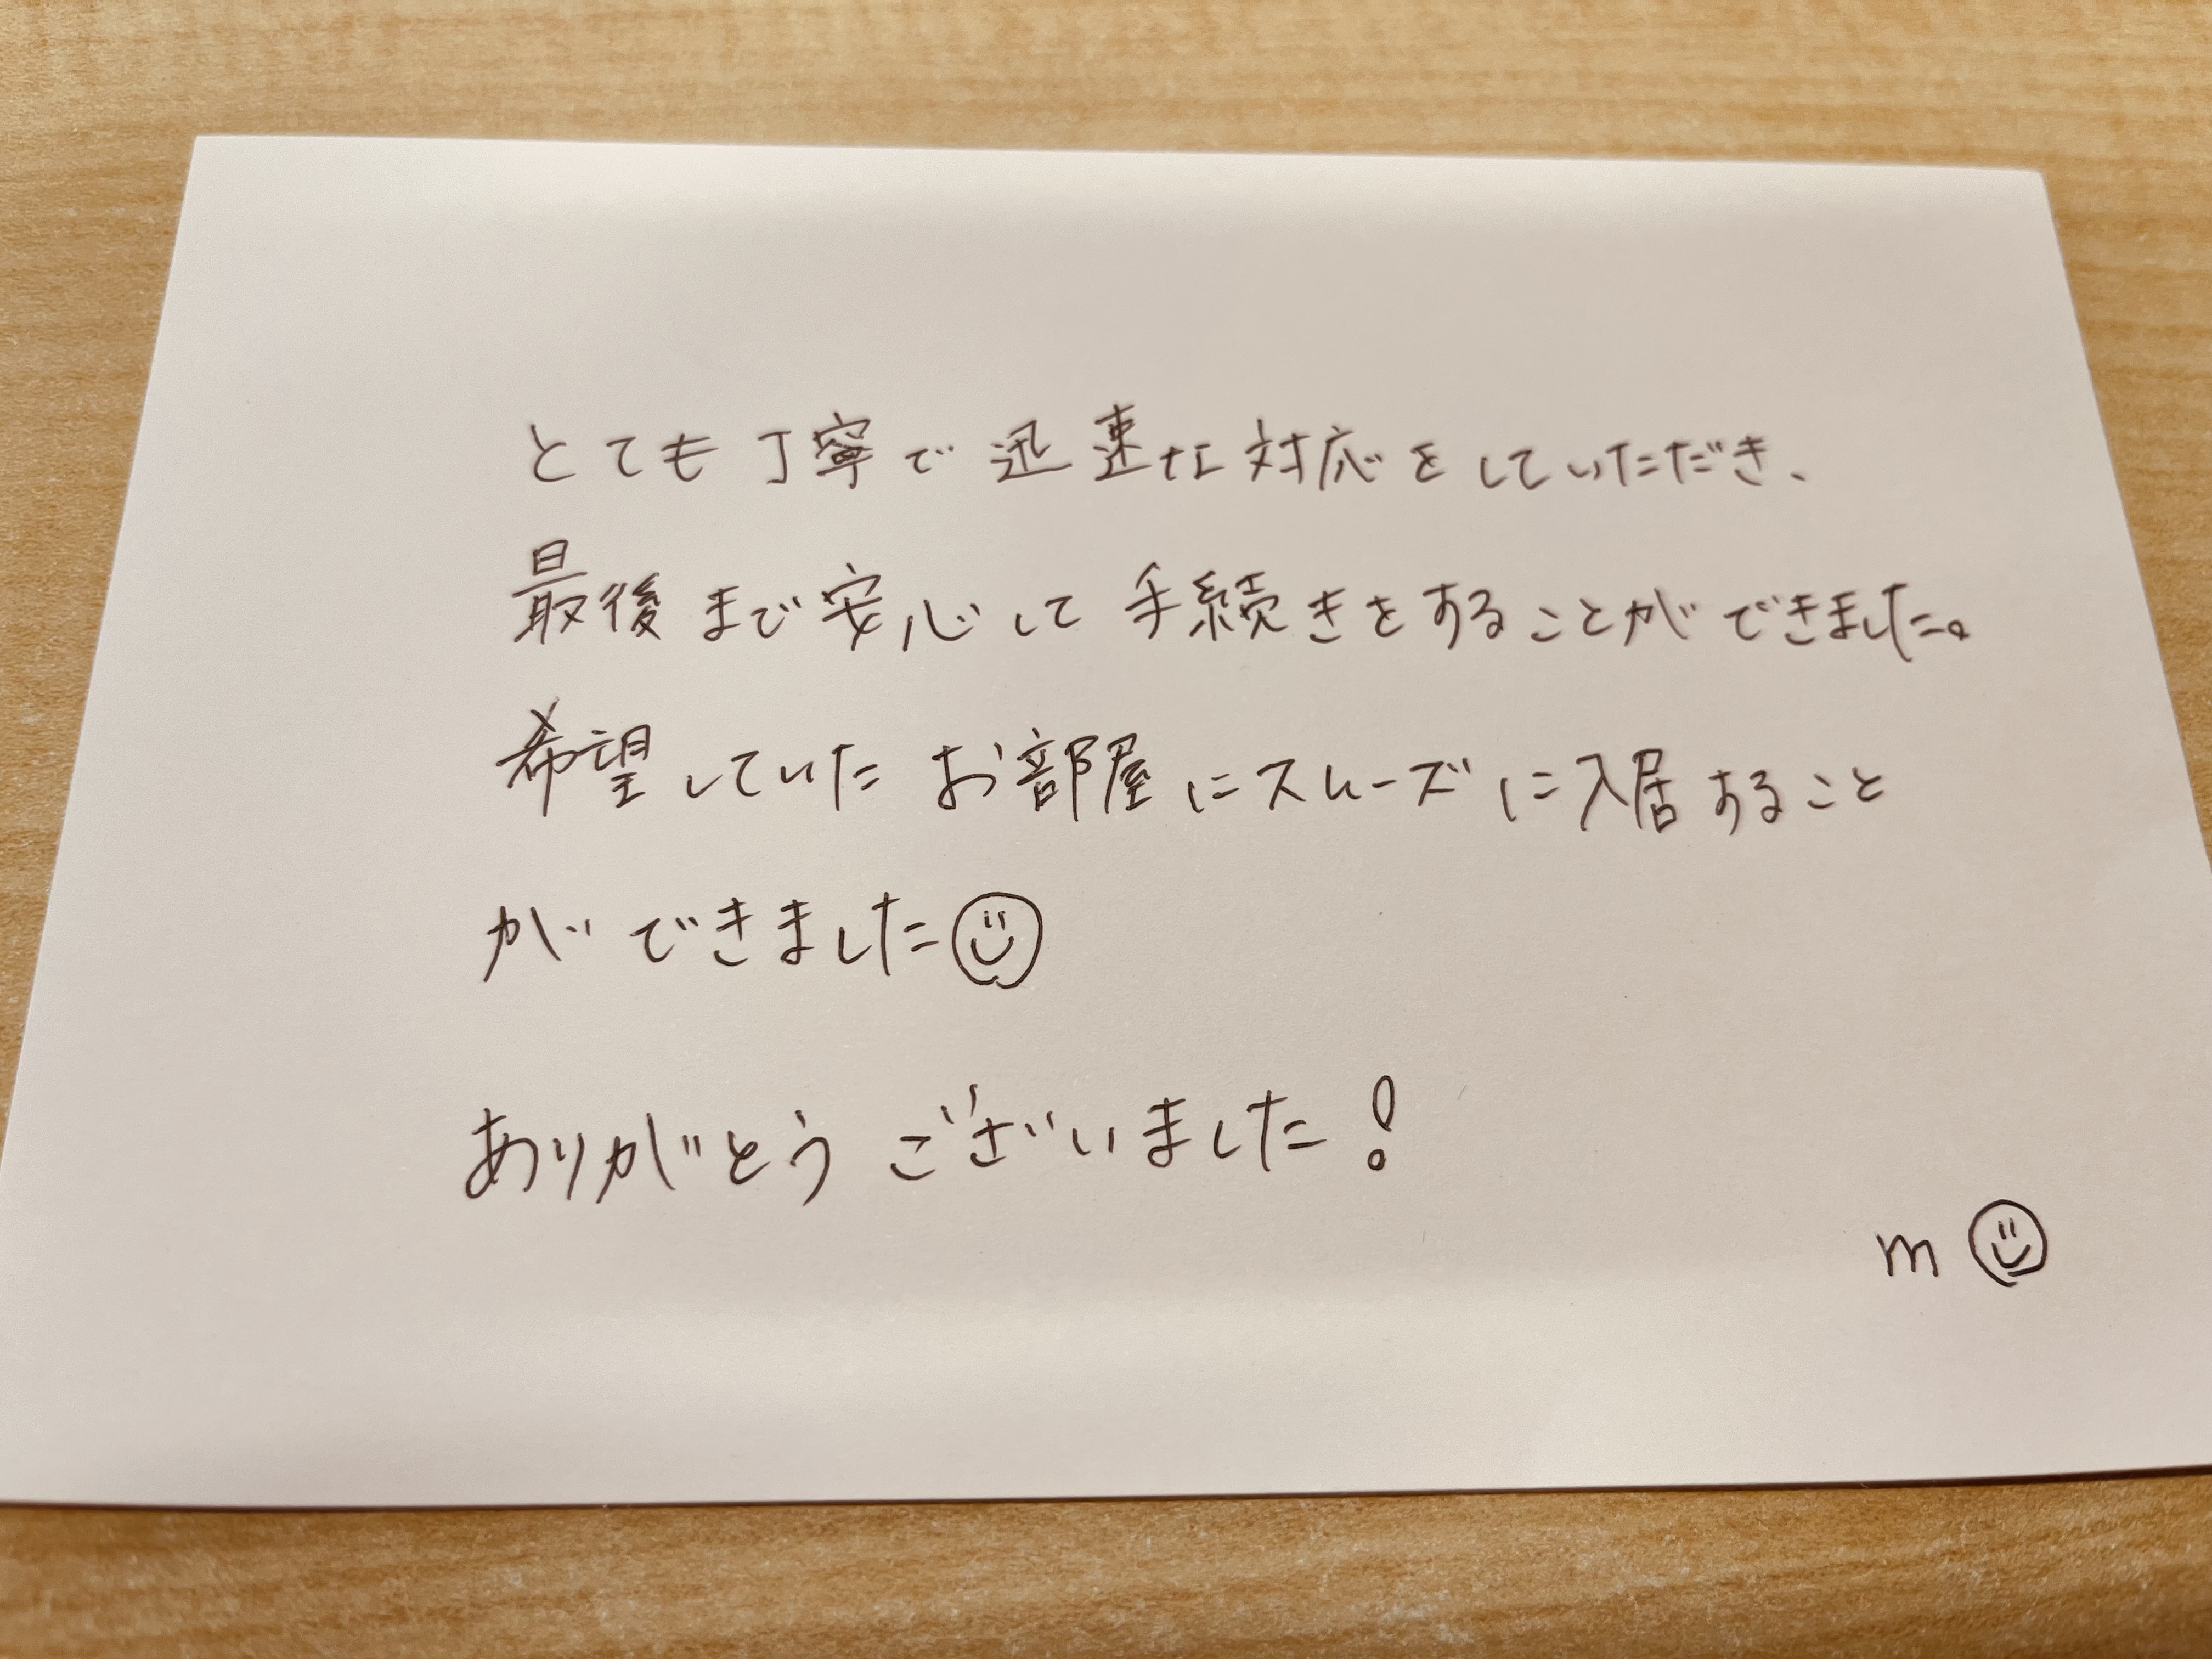 とても丁寧で迅速な対応をしていただき、
最後まで安心して手続きをすることができました。
希望していたお部屋にスムーズに入居すること
ができました☺
ありがとうございました!
m☺